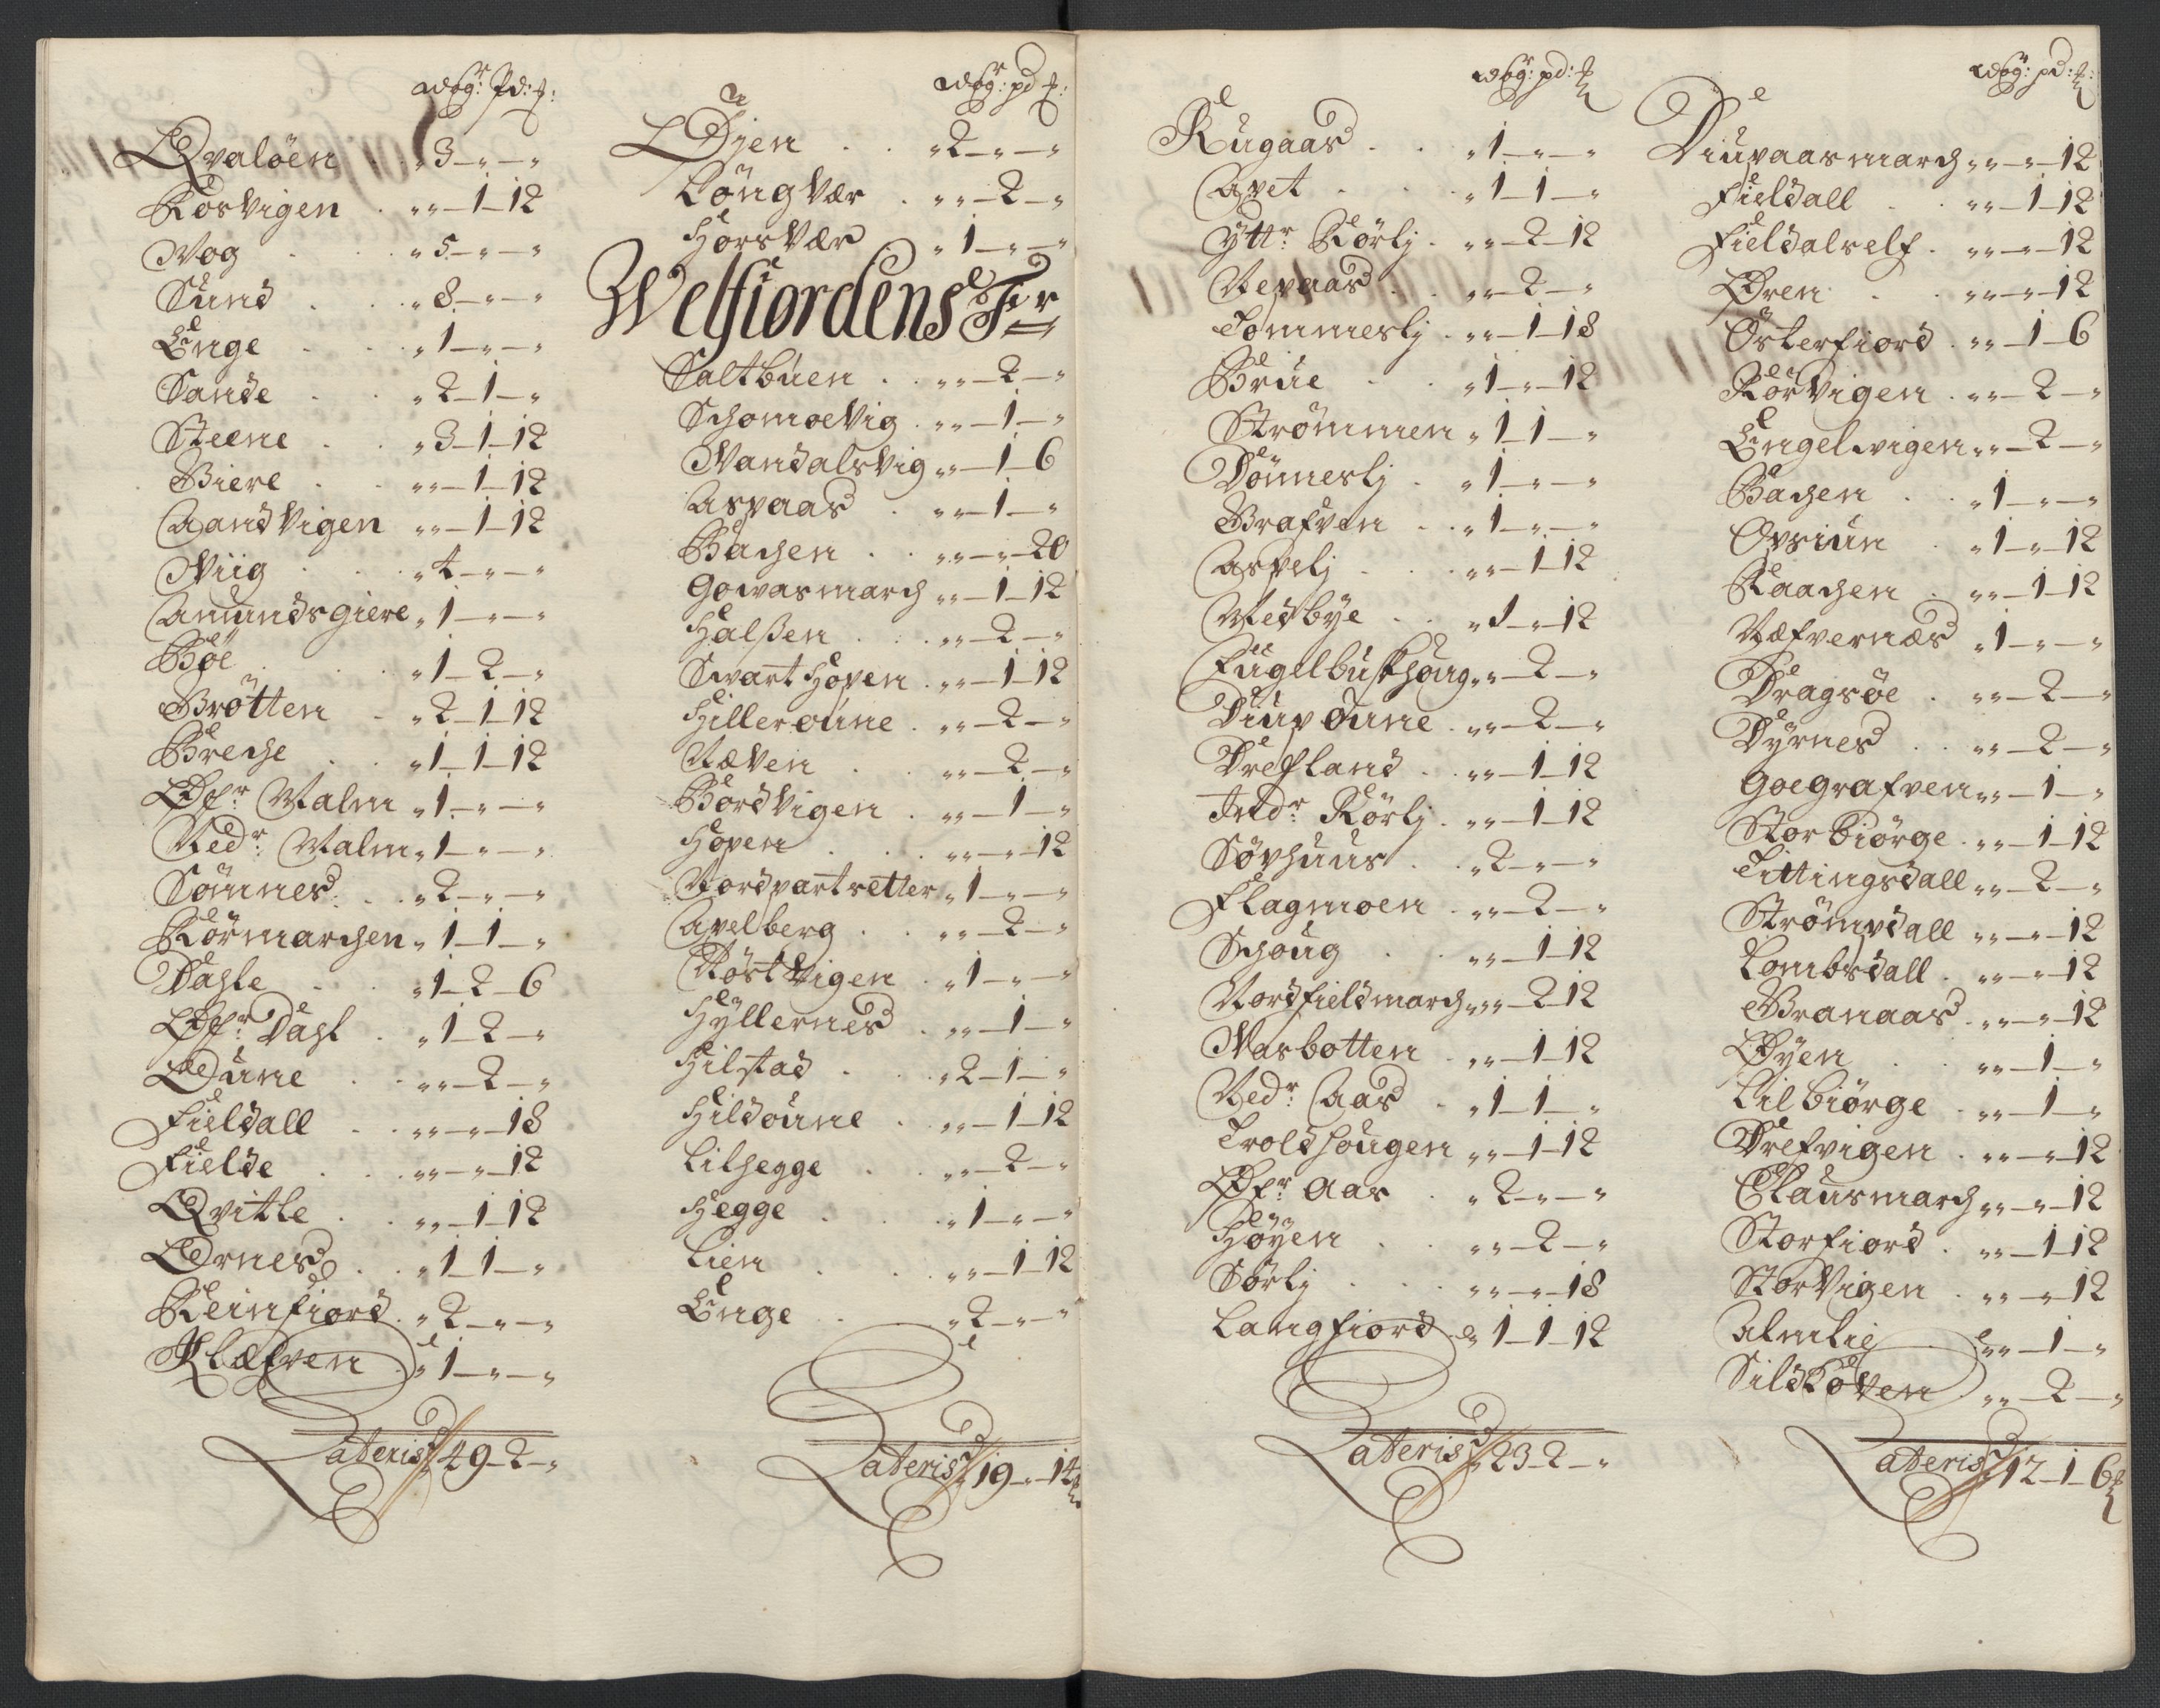 wog: pd: ℔:
Qvaløen . . „ 3 — „ — „
Rosvigen . „ „ — 1 — 12
Wog . . „ 5 — „ — „
Sund . . „ 8 — „ — „
Enge . . „ 1 — „ — „
Sande . „ 2 — 1 — „
Steene . „ 3 — 1 — 12
Biere . „ „ — 1 — 12
Aandvigen „ „ — 1 — 12
Viig . . „ 4 — „ — „
Amundsgiere „ 1 — „ — „
Bøe . . „ 1 — 2 — „
Brotten . „ 2 — 1 — 12
Breche . „ 1 — 1 — 12
Øfr Malm „ 1 — „ — „
Nedr: Malm „ 1 — „ — „
Sømnes . . „ 2 — „ — „
Rørmarchen „ 1 — 1 — „
Dahle . . „ 1 — 2 — 6
Øfr Dahl . „ 1 — 2 — „
Dune . „ „ — 2 — „
Fieldall . „ „ — „ — 18
Fielde . „ „ — „ — 12
Qvitle . „ „ — 1 — 12
Ornes . „ 1 — 1 — „
Reinfiord . „ 2 — „ — „
Klæfven . „ 1 — „ — „
Lateris „ 49 — 2 — „
wog: pd ℔:
Øyen . . „ 2 — „ — „
Longvær . „ „ — 2 — „
Horsvær . „ 1 — „ — „
Welfiordens Fr
Saltbuen . „ „ — 2 — „
Schomoevig . „ „ — 1 — „
Vandalsvig „ „ — 1 — 6
Aspaas . „ „ — 1 — „
Bachen . „ „ — „ — 20
Gowasmarch „ „ — 1 — 12
Halssen . „ „ — 2 — „
Swarthopen . „ „ — 1 — 12
Hilleroune . „ „ — 2 — „
Næven . „ „ — 2 — „
Bordvigen . „ „ — 1 — „
Hopen . „ „ — „ — 12
Nordpartretter „ 1 — „ — „
Apelberg . „ „ — 2 — „
Røstvigen . „ 1 — „ — „
Hyllernes . „ „ — 1 — „
Hilstad . „ 2 — 1 — „
Hildoune . „ „ — 1 — 12
Lilhegge . „ „ — 2 — „
Hegge . „ 1 — „ — „
Lien . „ „ — 1 — 12
Enge . „ 2 — „ — „
Lateris „ 19 — „ — 14
wog: pd: ℔
Rugaas . „ 1 — „ — „
Apet . . „ 1 — 1 — „
Yttr: Rørlj . „ „ — 2 — 12
Nepaas . „ „ — 2 — „
Tommerlj . „ „ — 1 — 18
Brue . . „ 1 — „ — 12
Strømmen „ 1 — 1 — „
Dønnerlj . „ 1 — „ — „
Grafven . „ 1 — „ — „
Aspelj . „ „ — 1 — 12
Nedbye . „ 1 — „ — 12
Fugelbuskhoug „ „ — 2 — „
Diupoune . „ „ — 2 — „
Drefland . „ „ — 1 — 12
Indr: Rørlj . „ „ — 1 — 12
Søphuus . „ 2 — „ — „
Flagmoen . „ „ — 2 — „
Schoug . „ „ — 1 — 12
Nordfieldmarch „ „ — 2 — 12
Vasbotten . „ „ — 1 — 12
Nedr: Aas . „ 1 — 1 — „
Troldhougen „ „ — 1 — 12
Øfr: Aas . „ 2 — „ — „
Høyen . „ „ — 2 — „
Sørlj . „ „ — „ — 18
Langfiord „ 1 — 1 — 12
Lateris „ 23 — 2 — „
wog: pd: ℔:
Diupaasmarch „ „ — „ — 12
Fieldall . „ „ — 1 — 12
Fieldalself . „ „ — „ — 12
Øren . „ „ — „ — 12
Østerfiord . „ „ — 1 — 6
Rørvigen . „ „ — 2 — „
Engelwigen „ „ — 2 — „
Bachen . „ 1 — „ — „
Opsiun . „ 1 — „ — 12
Raachen . „ „ — 1 — 12
Næfvernæs „ 1 — „ — „
Dragsøe . „ „ — 2 — „
Dyrnes . „ „ — 2 — „
Goegrafven „ „ — 1 — „
Storbiørge . „ „ — 1 — 12
Tittingsdall „ „ — 2 — „
Strømpdall „ „ — „ — 12
Lombsdall . „ „ — „ — 12
Granaas . „ „ — „ — 12
Øyen . „ „ — 1 — „
Lilbiørge . „ „ — 1 — „
Drefvigen . „ „ — „ — 12
Clausmarch „ „ — „ — 12
Storfiord . „ „ — 1 — 12
Storvigen . „ „ — „ — 12
Almlie „ „ — 1 — „
Sildhoven „ „ — 2 — „
Lateris „ 12 — 1 — 6 ℔